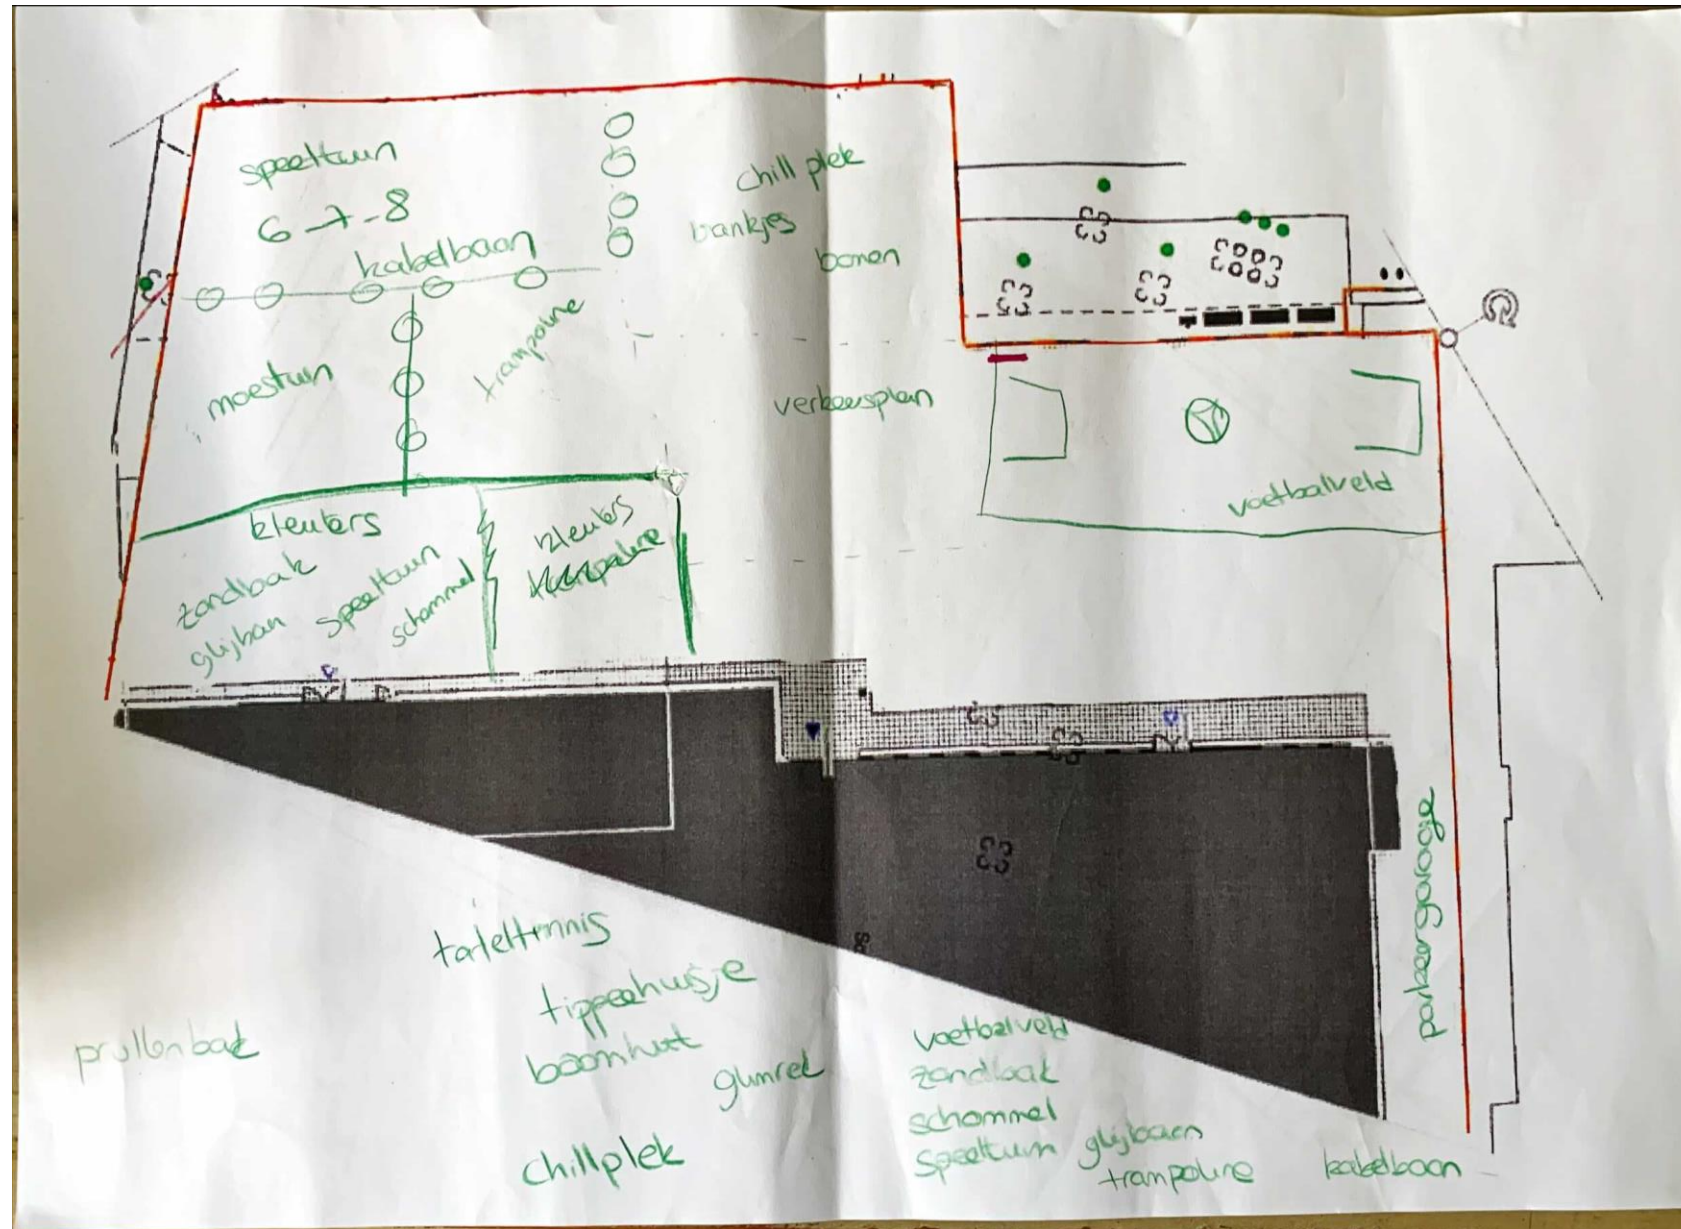 speeltuin
6-7-8
kabelbaan
chill plek
bankjes
bomen
moestuin
trampoline
verkeersplein
voetbalveld
kleuters
zandbak
glijban
speeltuin
schommel
kleuters
parkeergarage
tafeltennis
tippeehuisje
boomhutt
prullenbak
glimrek
chillplek
voetbalveld
zandbak
schommel
speeltuin
glijbaan
trampoline
kabelbaan